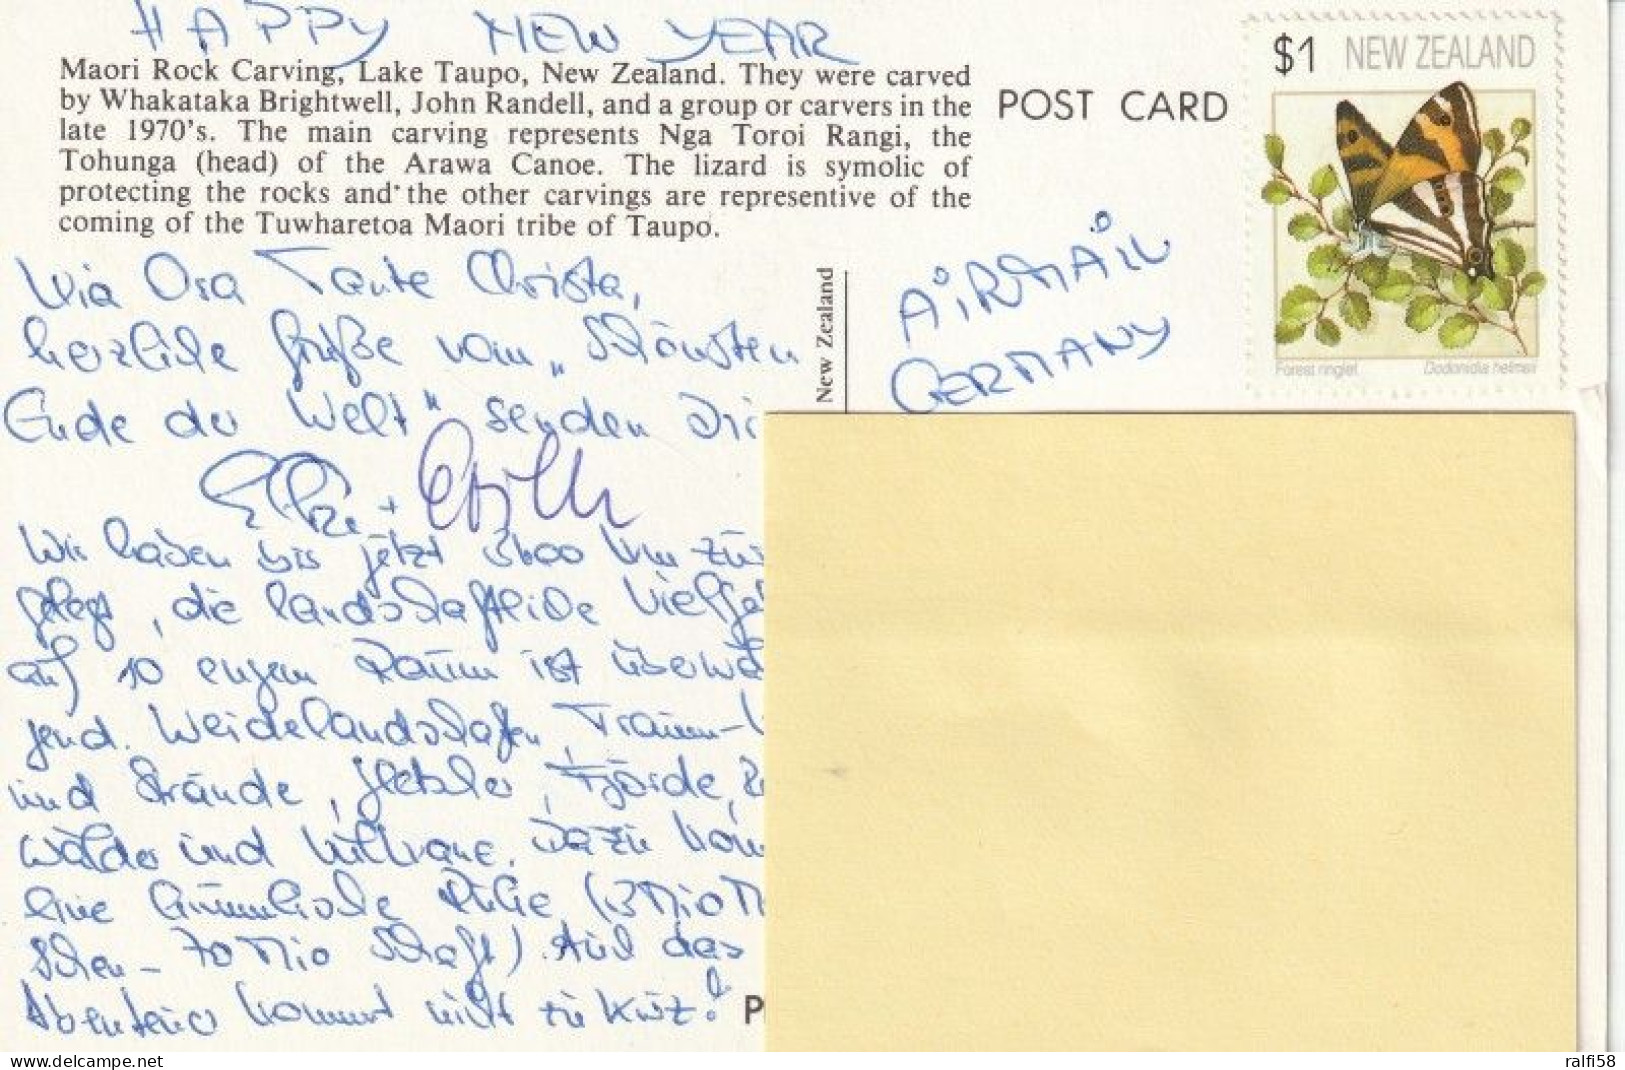 HAPPY NEW YEAR
Maori Rock Carving, Lake Taupo, New Zealand. They were carved
by Whakataka Brightwell, John Randell, and a group or carvers in the
late 1970's. The main carving represents Nga Toroi Rangi, the
Tohunga (head) of the Arawa Canoe. The lizard is symolic of
protecting the rocks and the other carvings are representive of the
coming of the Tuwharetoa Maori tribe of Taupo.
POST CARD
$1 NEW ZEALAND
Forest ringlet Dodonidia helmsii
AIRMAIL
GERMANY
New Zealand
Kia Ora Tante Christa,
herzliche Grüße vom „Schönsten
Ende der Welt" senden Dir
+
Wir haben bis jetzt 3600 km zu
gelegt, die landschaftliche Vielfal
auf so engem Raum ist überwäl
gend. Weidelandschaften, Traum-
und Strände, Gletscher, Fjorde,
wälder und Vulkane. Dazu kom
eine himmlische Ruhe (3 Mio M
schen - 70 Mio Schafe) Auch das
Abenteuer kommt nicht zu kurz!
P
ralfi58